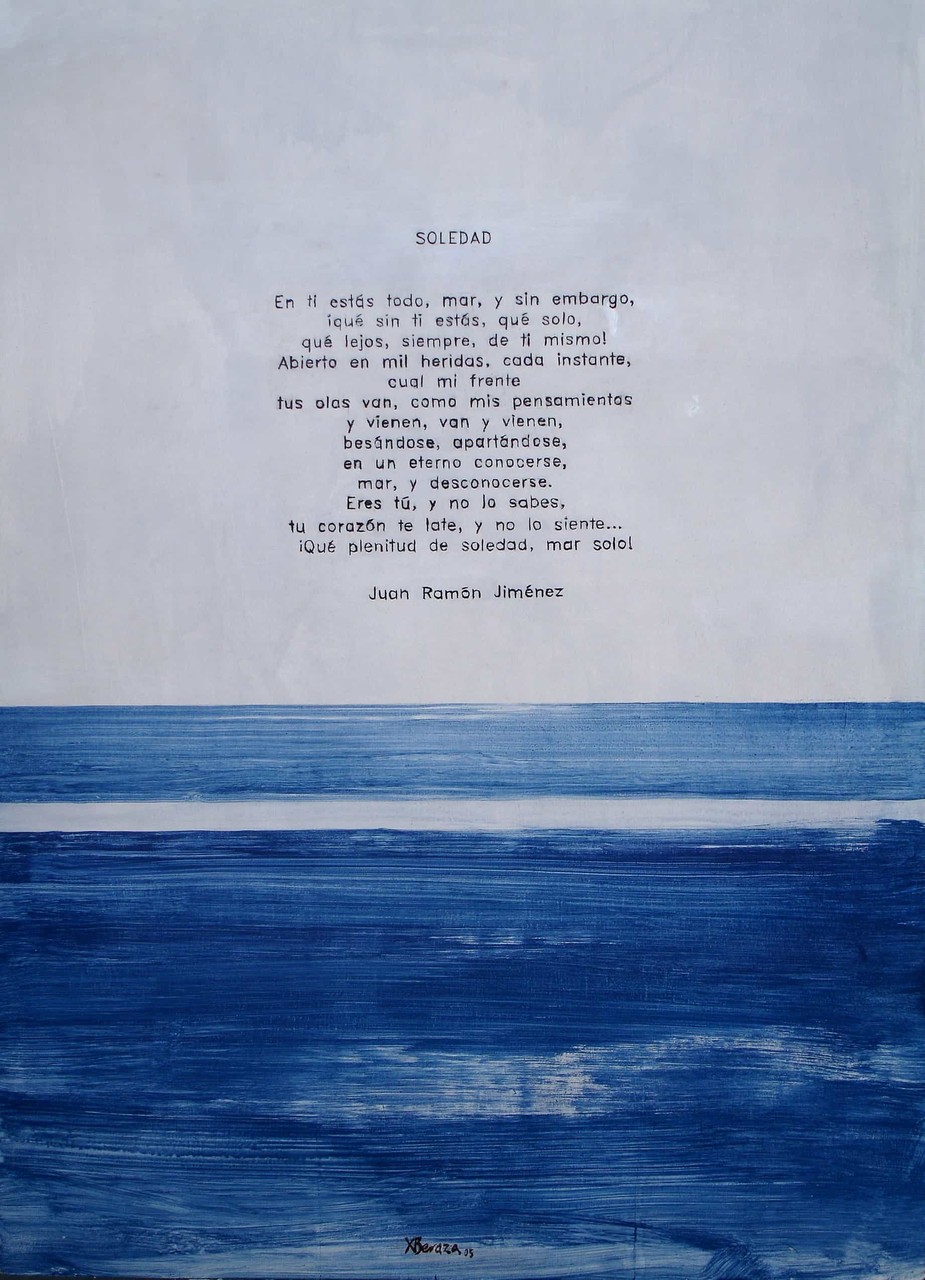 SOLEDAD
En ti estás todo, mar, y sin embargo,
¡qué sin ti estás, qué solo,
qué lejos, siempre, de ti mismo!
Abierto en mil heridas, cada instante,
cual mi frente
tus olas van, como mis pensamientos
y vienen, van y vienen,
besándose, apartándose,
en un eterno conocerse,
mar, y desconocerse.
Eres tú, y no lo sabes,
tu corazón te late, y no lo siente...
¡Qué plenitud de soledad, mar solo!
Juan Ramón Jiménez
XBeraza 05